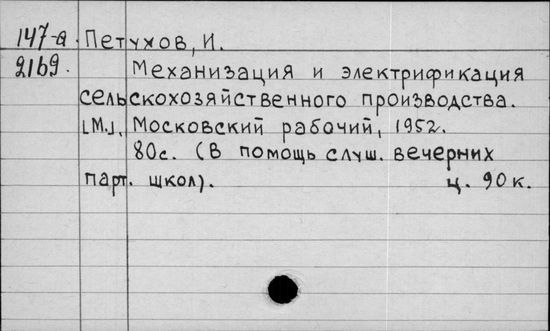 147-а Петухов, И.
2169. Механизация и электрификация
сельскохозяйственного производства.
[М.], Московский рабочий, 1952.
80с. (В помощь слуш. вечерних
парт. школ). ц. 90к.